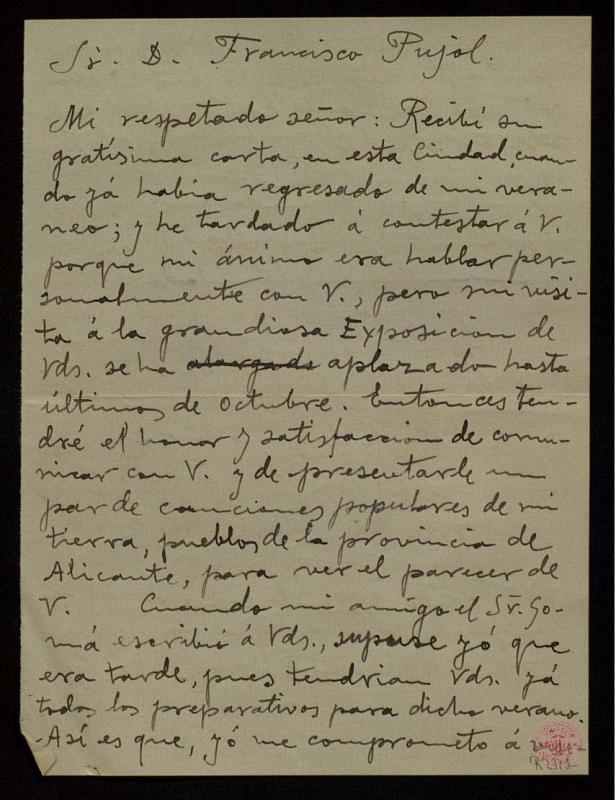 Sr. D. Francisco Pujol.
Mi respetado señor: Recibí su
gratísima carta, en esta Ciudad, cuan-
do yá había regresado de mi vera-
neo; y he tardado á contestar á V.
porque mi ánimo era hablar per-
sonalmente con V., pero mi visi-
ta á la grandiosa Exposición de
Vds. se ha alargado aplazado hasta
últimos de Octubre. Entonces ten-
dré el honor y satisfacción de comu-
nicar con V. y de presentarle un
par de canciones populares de mi
tierra, pueblos de la provincia de
Alicante, para ver el parecer de
V. Cuando mi amigo el Sr. Go-
má escribió á Vds., supuse yó que
era tarde, pues tendrian Vds. yá
todos los preparativos para dicho verano.
Así es que, yó me comprometo á